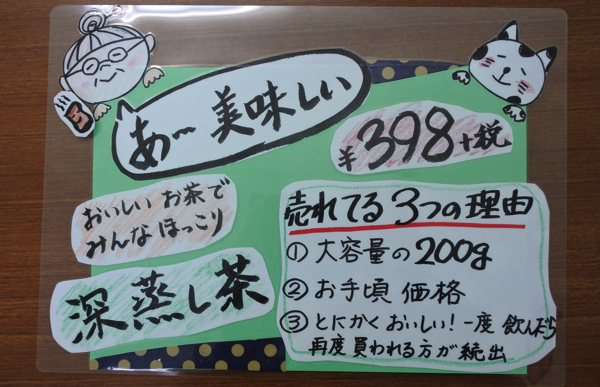 あ〜美味しい
¥398+税
おいしいお茶で
みんなほっこり
深蒸し茶
売れてる3つの理由
①大容量の200g
②お手頃価格
③とにかくおいしい!一度飲んだら
再度買われる方が続出